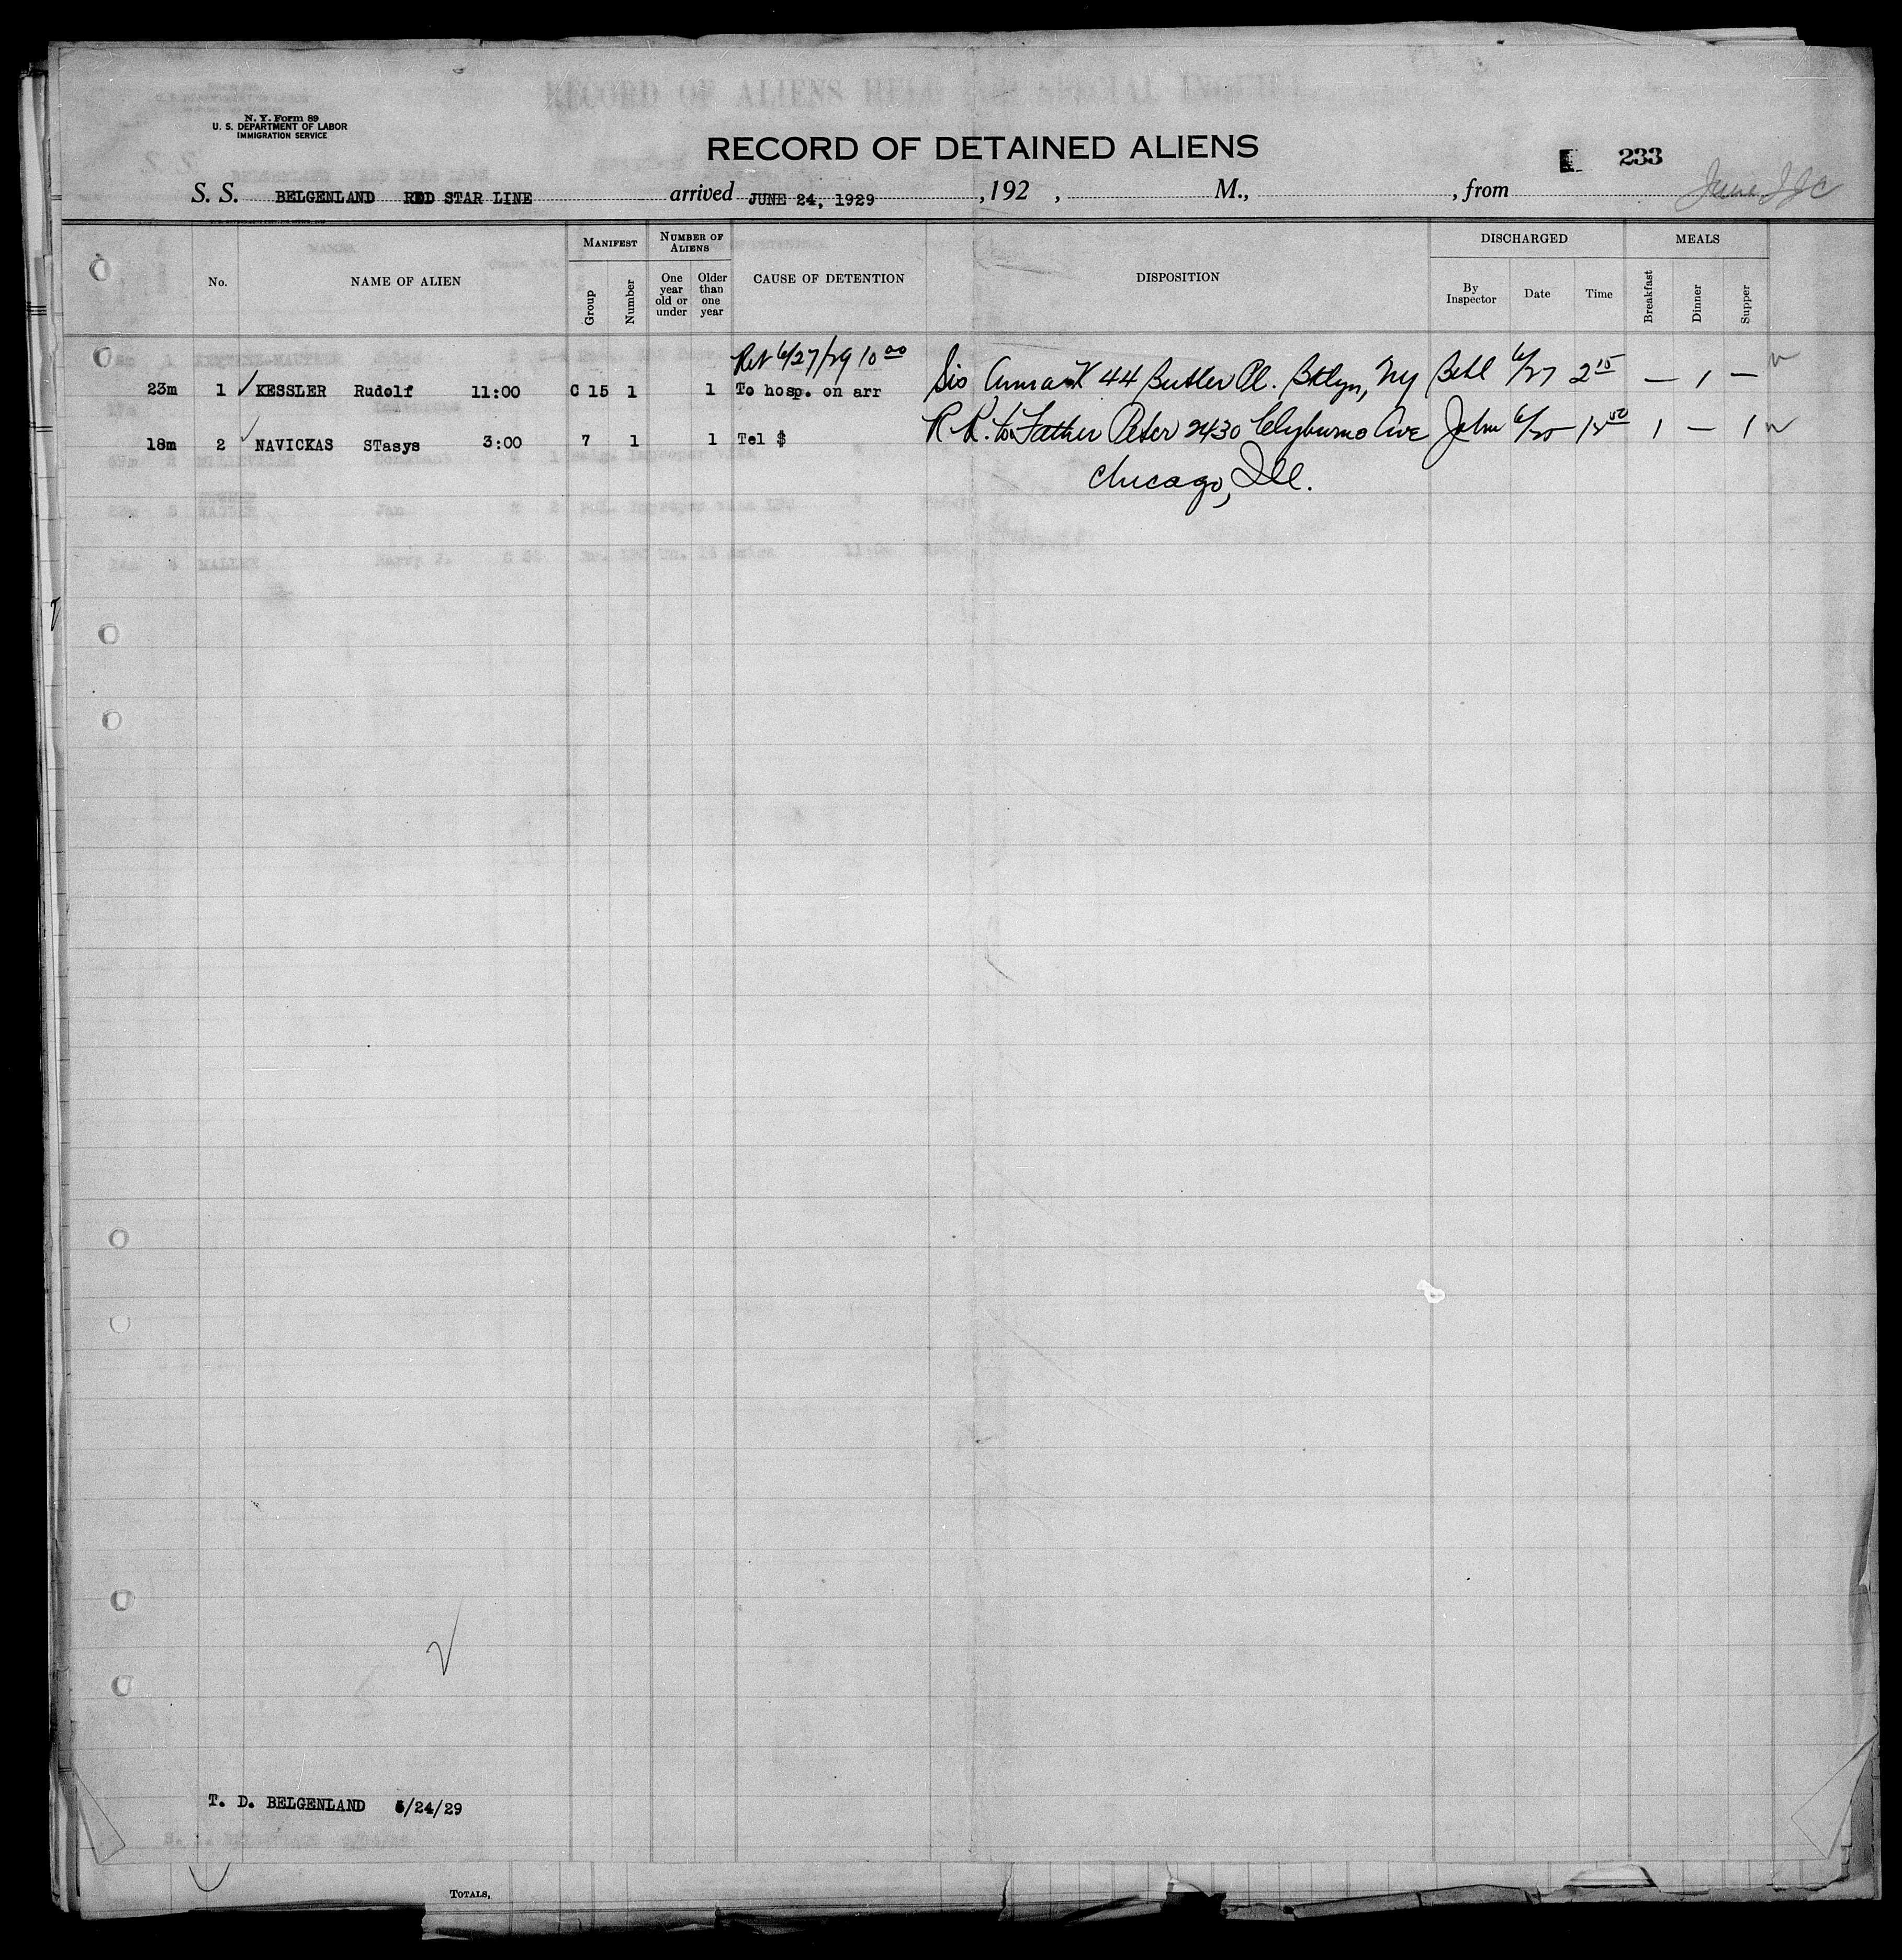 N. Y. Form 89
U. S. DEPARTMENT OF LABOR
IMMIGRATION SERVICE
RECORD OF ALIENS HELD FOR SPECIAL INQUIRY
RECORD OF DETAINED ALIENS
233
S. S. BELGENLAND RED STAR LINE arrived JUNE 24, 1929 , 192 , M., , from
No.
NAME OF ALIEN
MANIFEST
Group
Number
NUMBER OF ALIENS
One year old or under
Older than one year
CAUSE OF DETENTION
DISPOSITION
DISCHARGED
By Inspector
Date
Time
MEALS
Breakfast
Dinner
Supper
Ret 6/27/29 10 00
23m 1 ✓ KESSLER Rudolf 11:00 C 15 1 1 To hosp. on arr Sis Anna K 44 Butler Pl. Bklyn, NY 6/27 2 15 — 1 —
18m 2 ✓ NAVICKAS STasys 3:00 7 1 1 Tel $ R.R. to Father Peter 2430 Clyburno Ave John 6/25 1 — 1
Chicago, Ill.
T. D. BELGENLAND 6/24/29
TOTALS,